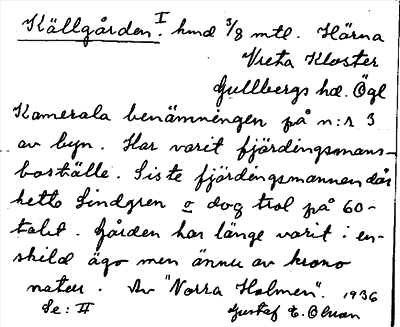 Källgården. I. kmd 3/8 mtl. Härna
Vreta Kloster
Gullbergs hd. Ögl
Kamerala benämningen på n:r 3
av byn. Har varit fjärdingsmans-
boställe. Siste fjärdingsmannen där
hette Lindgren o dog trol på 60-
talet. Gården har länge varit i en-
skild ägo men ännu av krono
natur. Av "Norra Holmen". 1936
Se: II Gustaf E. Olsson